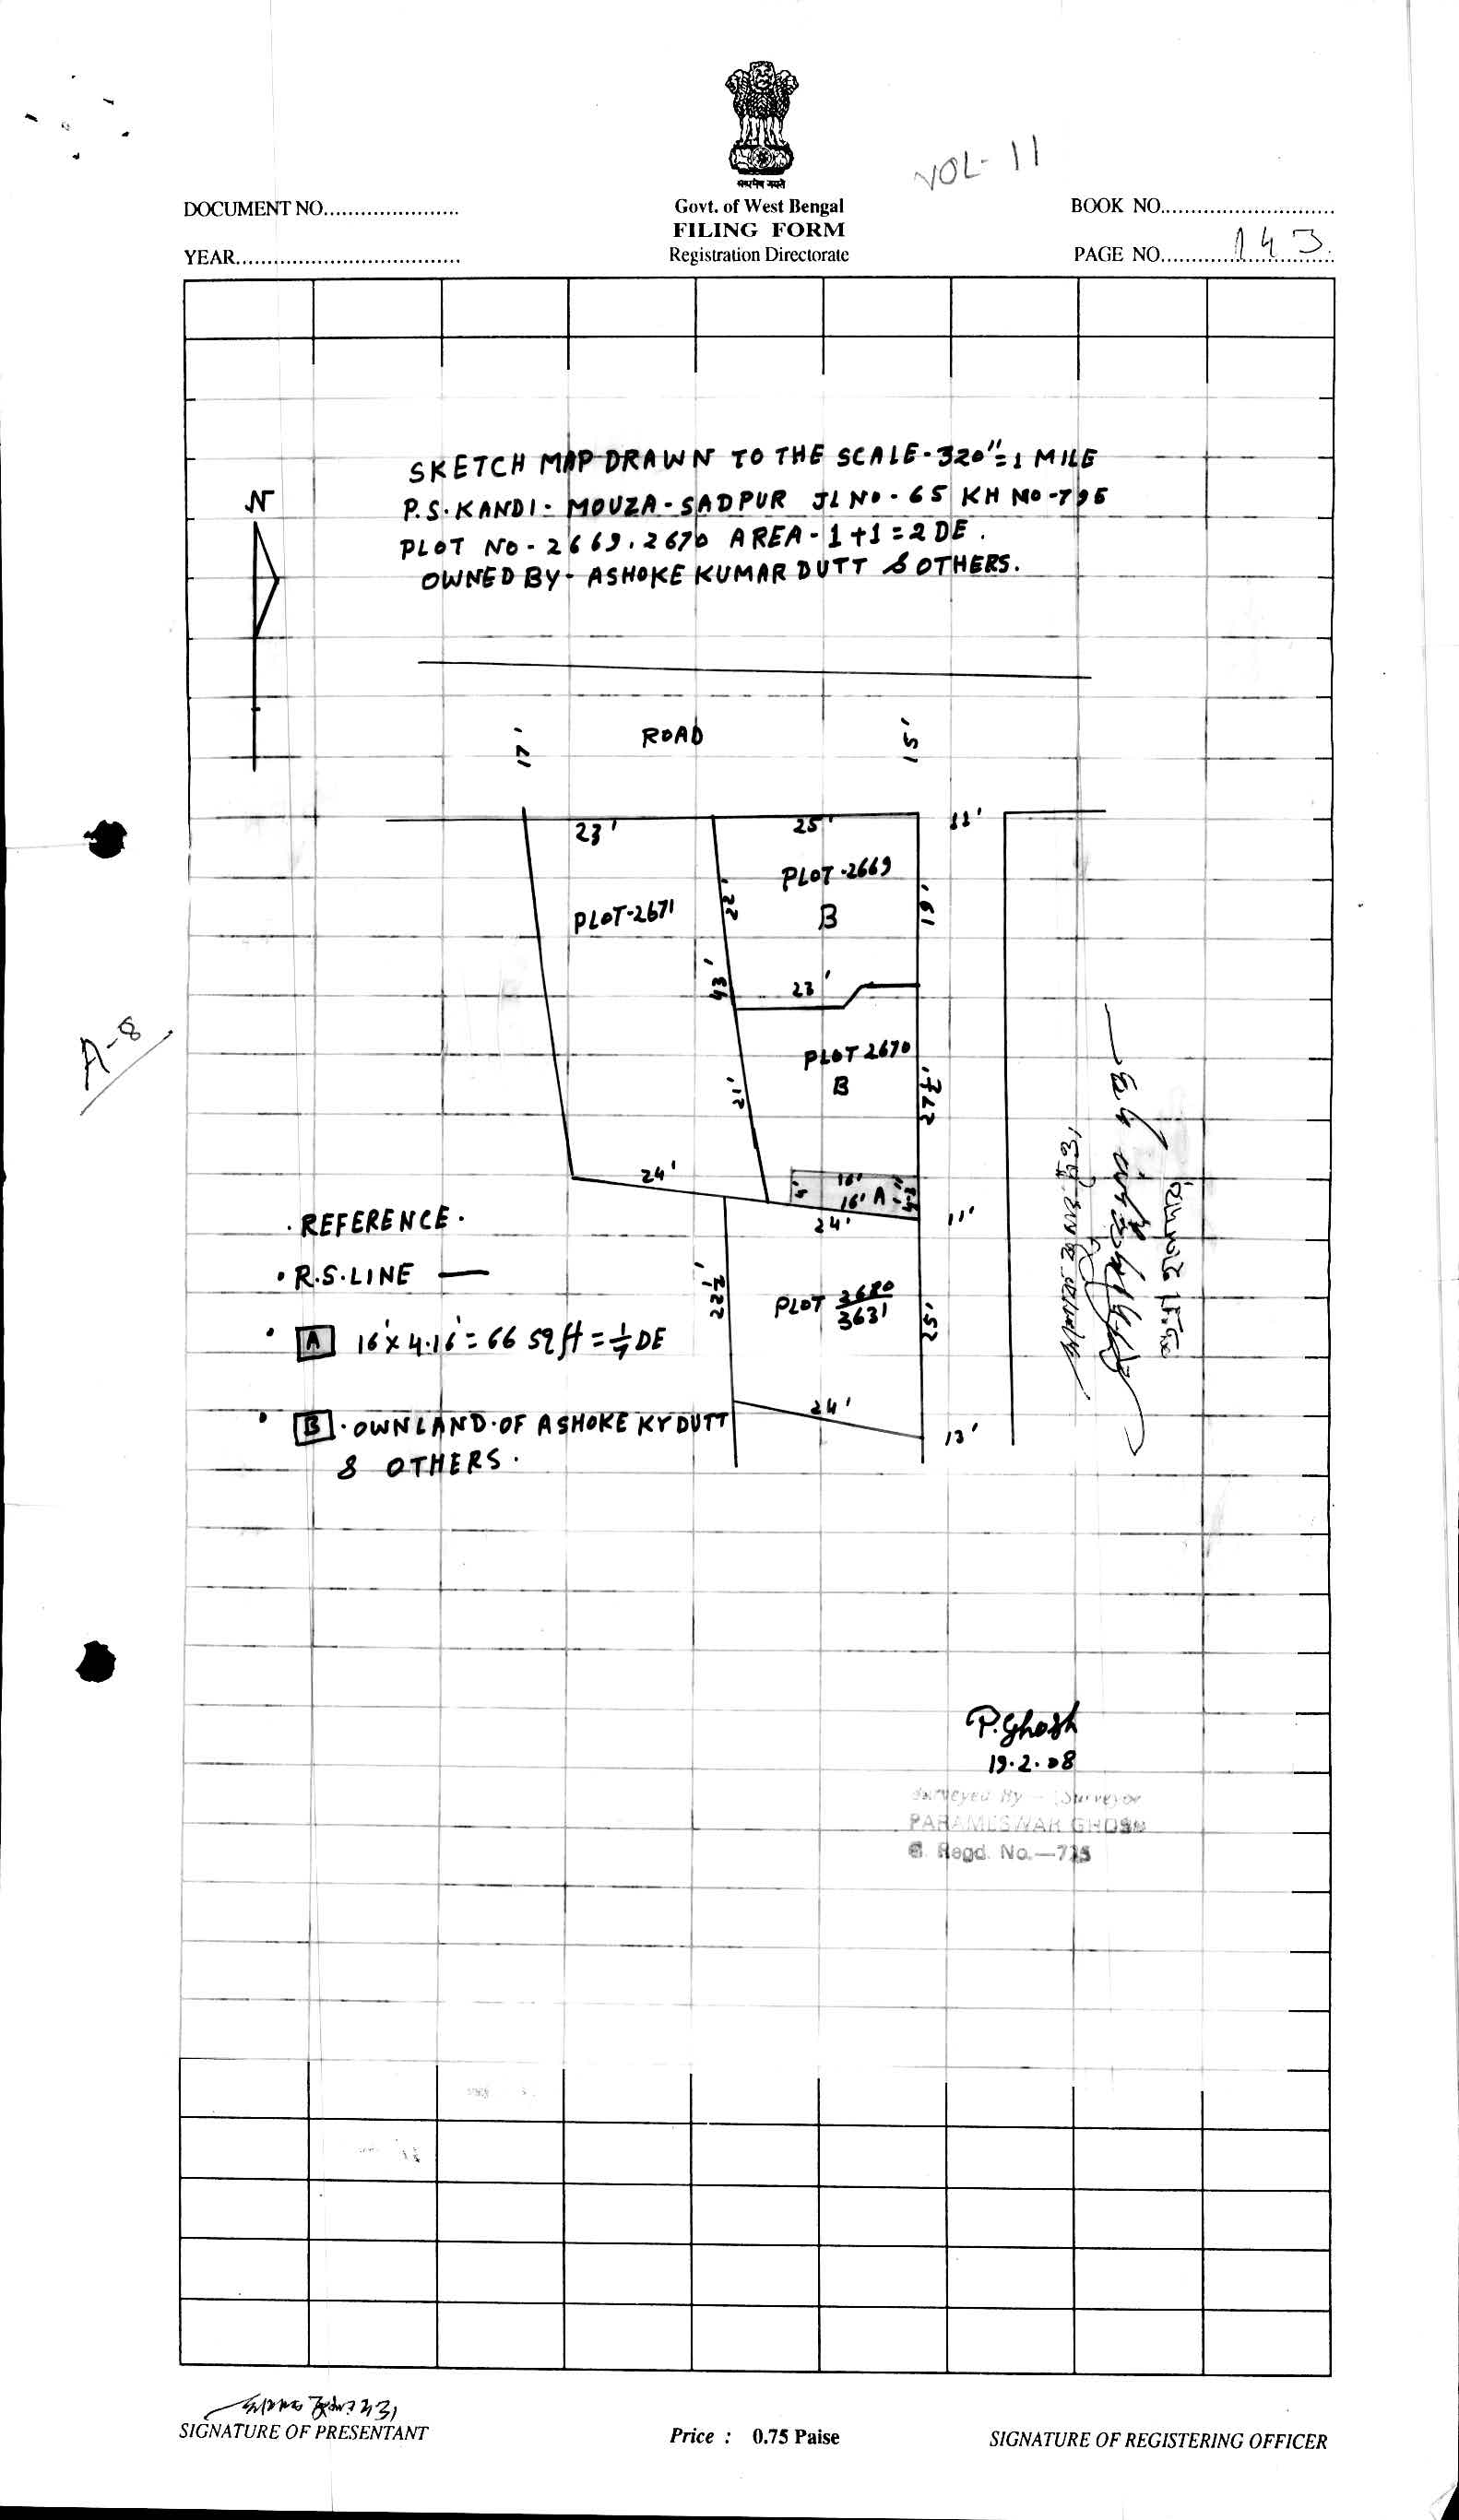 सत्यमेव जयते
VOL- 11
DOCUMENT NO......................
Govt. of West Bengal
BOOK NO............................
FILING FORM
YEAR....................................
Registration Directorate
PAGE NO............................
143
SKETCH MAP DRAWN TO THE SCALE-320"=1 MILE
P.S. KANDI- MOUZA-SADPUR JL NO-65 KH NO-795
PLOT NO-2669.2670 AREA-1+1=2DE.
OWNED BY- ASHOKE KUMAR DUTT & OTHERS.
N
17'
ROAD
15'
23'
25'
11'
PLOT-2669
B
PLOT-2671
22'
19'
43'
23'
A-8
PLOT 2670
B
21'
27½'
24'
16'
16' A
5'
24'
11'
.REFERENCE.
.R.S.LINE —
22½'
PLOT 3680/3631
25'
. A 16'x4.16'=66 sqft=1/7 DE
24'
13'
. B .OWNLAND.OF ASHOKE KR DUTT
& OTHERS.
P.Ghosh
19.2.08
Surveyed By - Surveyor
PARAMESWAR GHOSH
Regd. No.—725
SIGNATURE OF PRESENTANT
Price : 0.75 Paise
SIGNATURE OF REGISTERING OFFICER